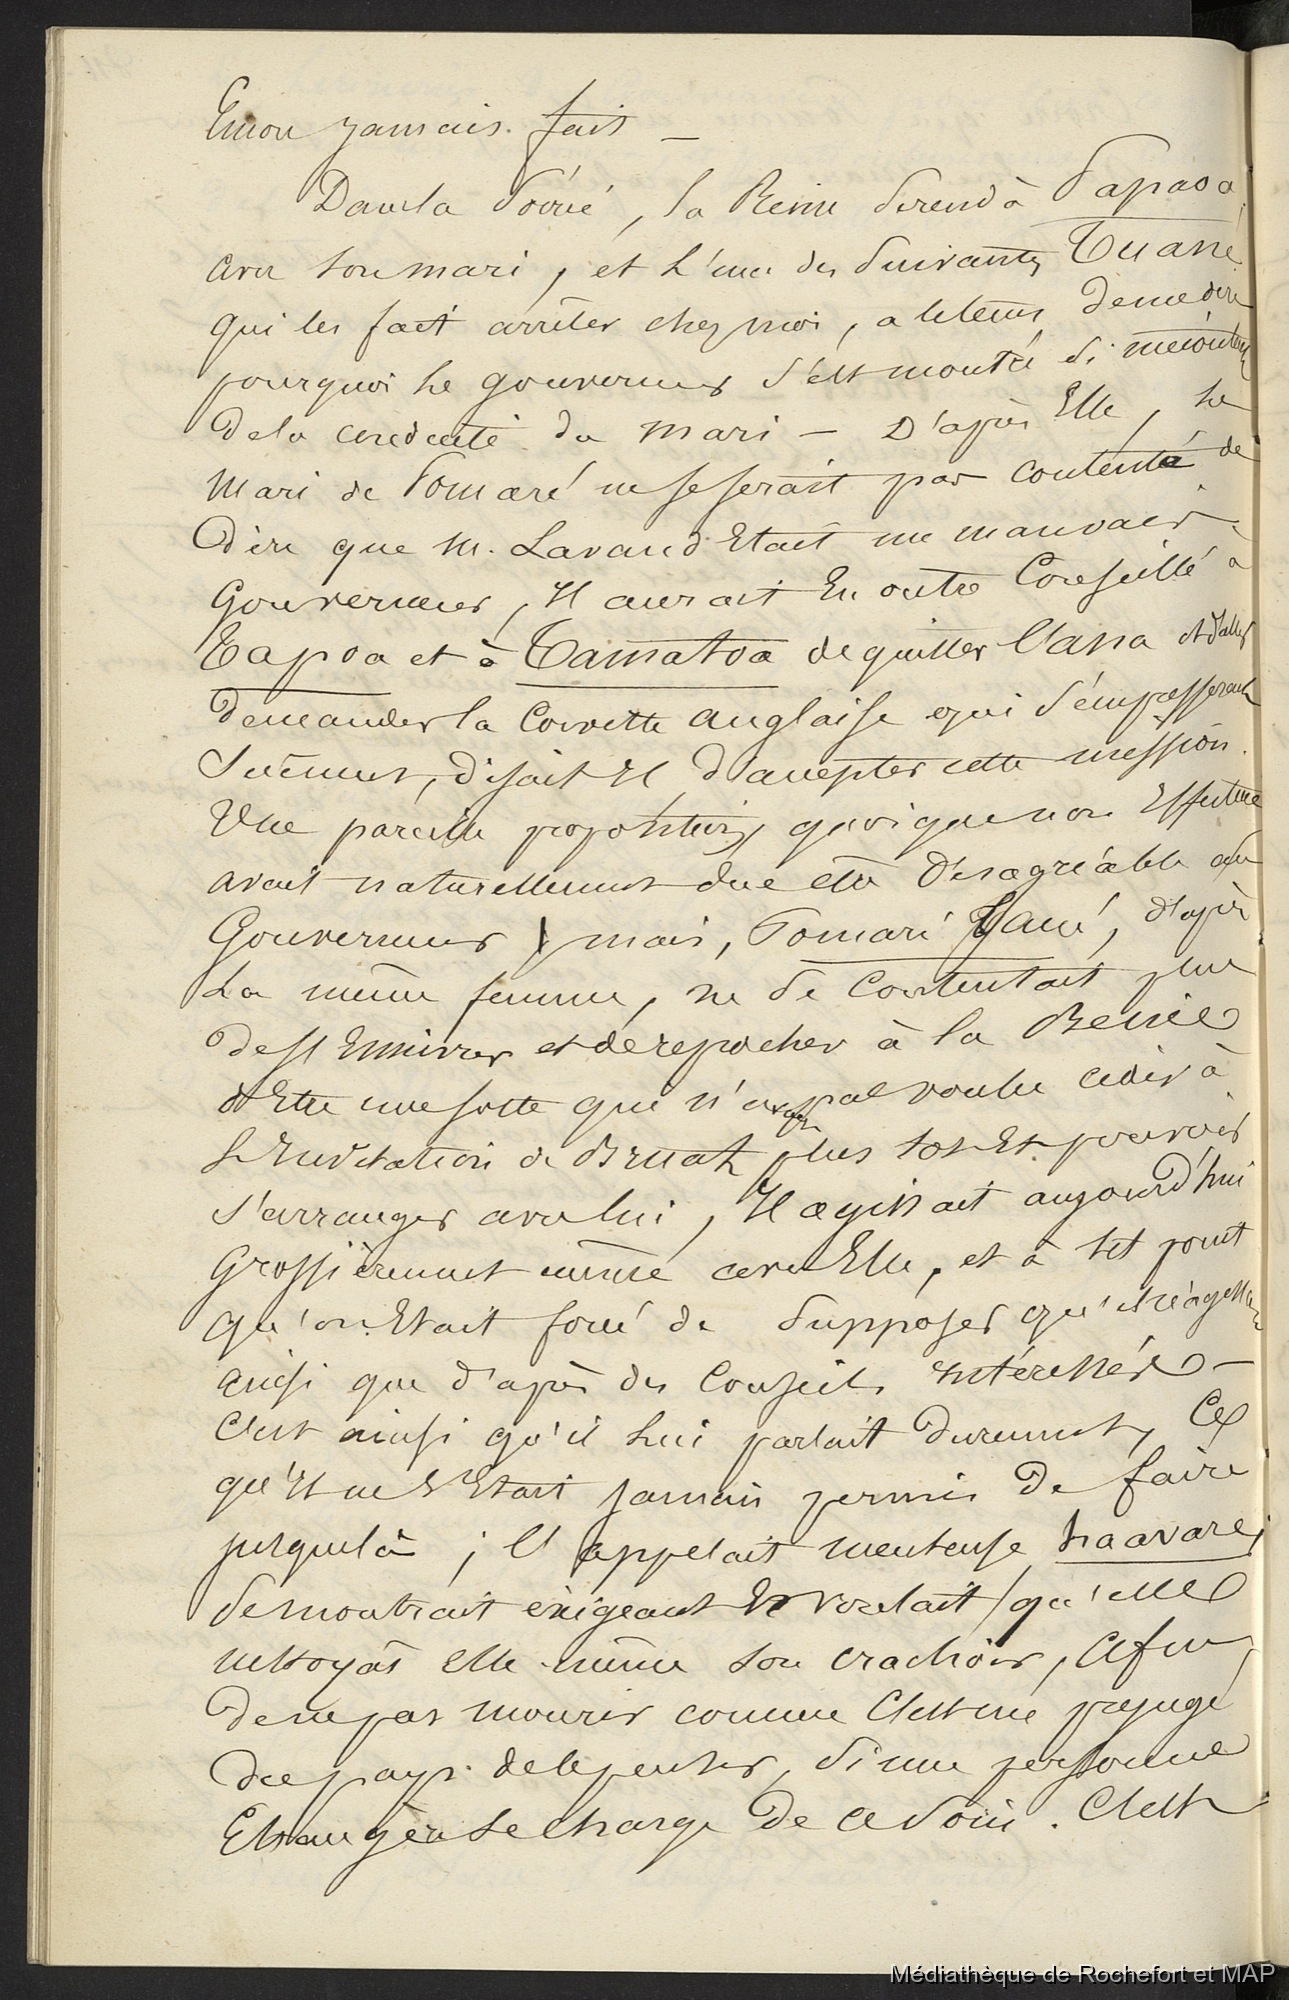 Emou jamais fait —
Dans la soirée, la Reine se rend à Papaoa
avec son mari, et l'une des suivantes Tuané
qui les fait arrêter chez moi, a le tems de me dire
pourquoi le gouverneur s'est montré si mécontent
de la conduite du mari — D'après Elle, le
mari de Pomaré ne se serait pas contenté de
dire que M. Lavaud Etait un mauvais
Gouverneur, Il aurait En outre Conseillé à
Tapoa et à Tamatoa de quitter l'Ana et d'aller
demander la Corvette anglaise qui s'empresserait
surement, disait Il, d'accepter cette mission.
Une pareille proposition, quoique non Effectuée
avait naturellement due être désagréable au
Gouverneur, mais, Pomaré Tané, d'après
La même femme, ne se Contentait plus
de s'Ennivrer et de reprocher à la Reine
d'Etre une sotte qui n'a pas voulu céder à
L'Invitation de Bruat plus tot Et pouvoir
s'arranger avec lui, Il agissait aujourd'hui
Grossièrement même avec Elle, et à tel point
qu'on Etait forcé de supposer qu'il n'agissait
ainsi que d'après des Conseils intéressés —
C'est ainsi qu'il lui parlait durement, Ce
qu'Il ne s'Etait jamais permis de faire
jusque là ; Il l'appelait menteuse haavare,
se montrait éxigeant Et voulait qu'elle
nettoyât elle même son crachoir, Afin
de ne pas mourir comme C'est un préjugé
du pays de le penser, si une personne
Etrangère se charge de ce soin. C'est
Médiathèque de Rochefort et MAP